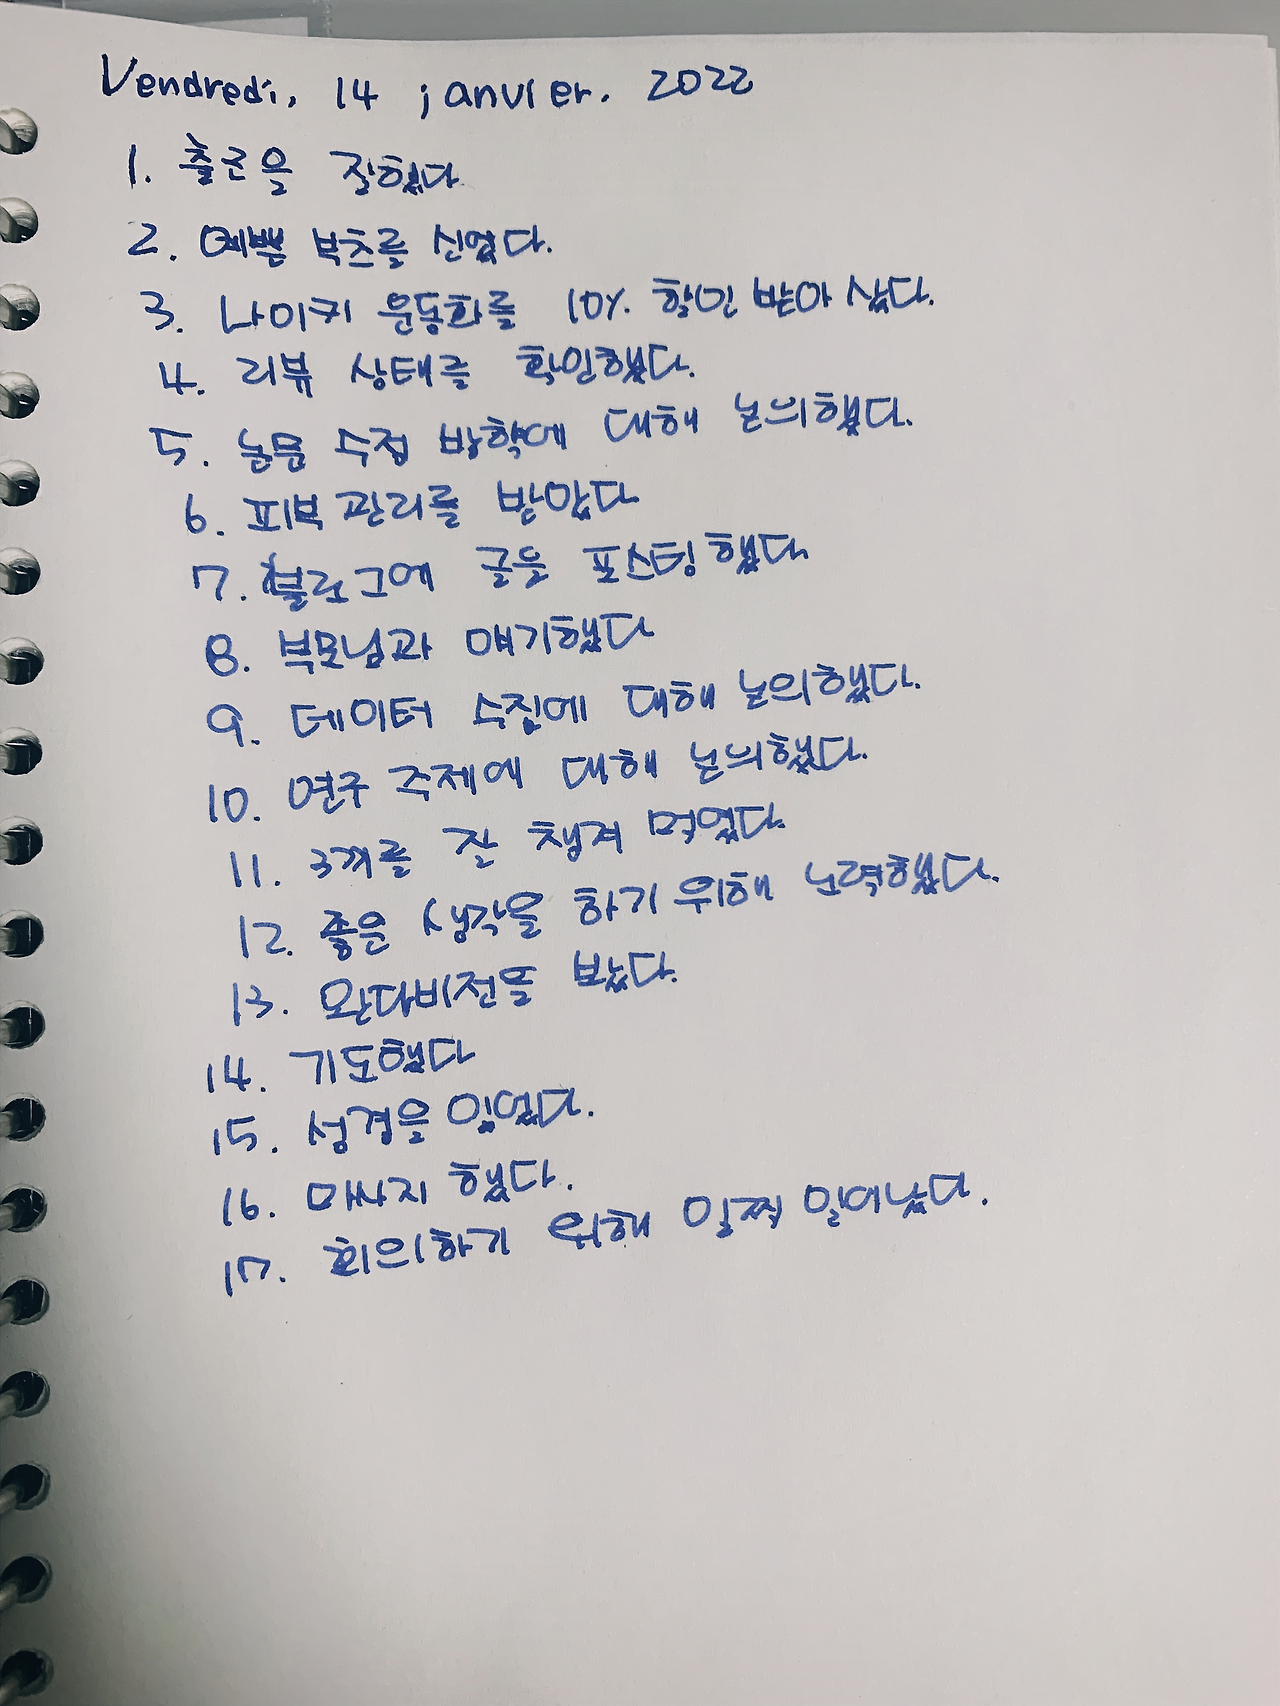 Vendredi, 14 janvier. 2022
1. 출근을 잘했다
2. 예쁜 부츠를 신었다.
3. 나이키 운동화를 10% 할인 받아 샀다.
4. 리뷰 상태를 확인했다.
5. 논문 수정 방향에 대해 논의했다.
6. 피부 관리를 받았다
7. 블로그에 글을 포스팅했다.
8. 부모님과 얘기했다
9. 데이터 수집에 대해 논의했다.
10. 연구 주제에 대해 논의했다.
11. 3끼를 잘 챙겨 먹었다.
12. 좋은 생각을 하기 위해 노력했다.
13. 완다비전을 봤다.
14. 기도했다
15. 성경을 읽었다.
16. 마사지 했다.
17. 회의하기 위해 일찍 일어났다.